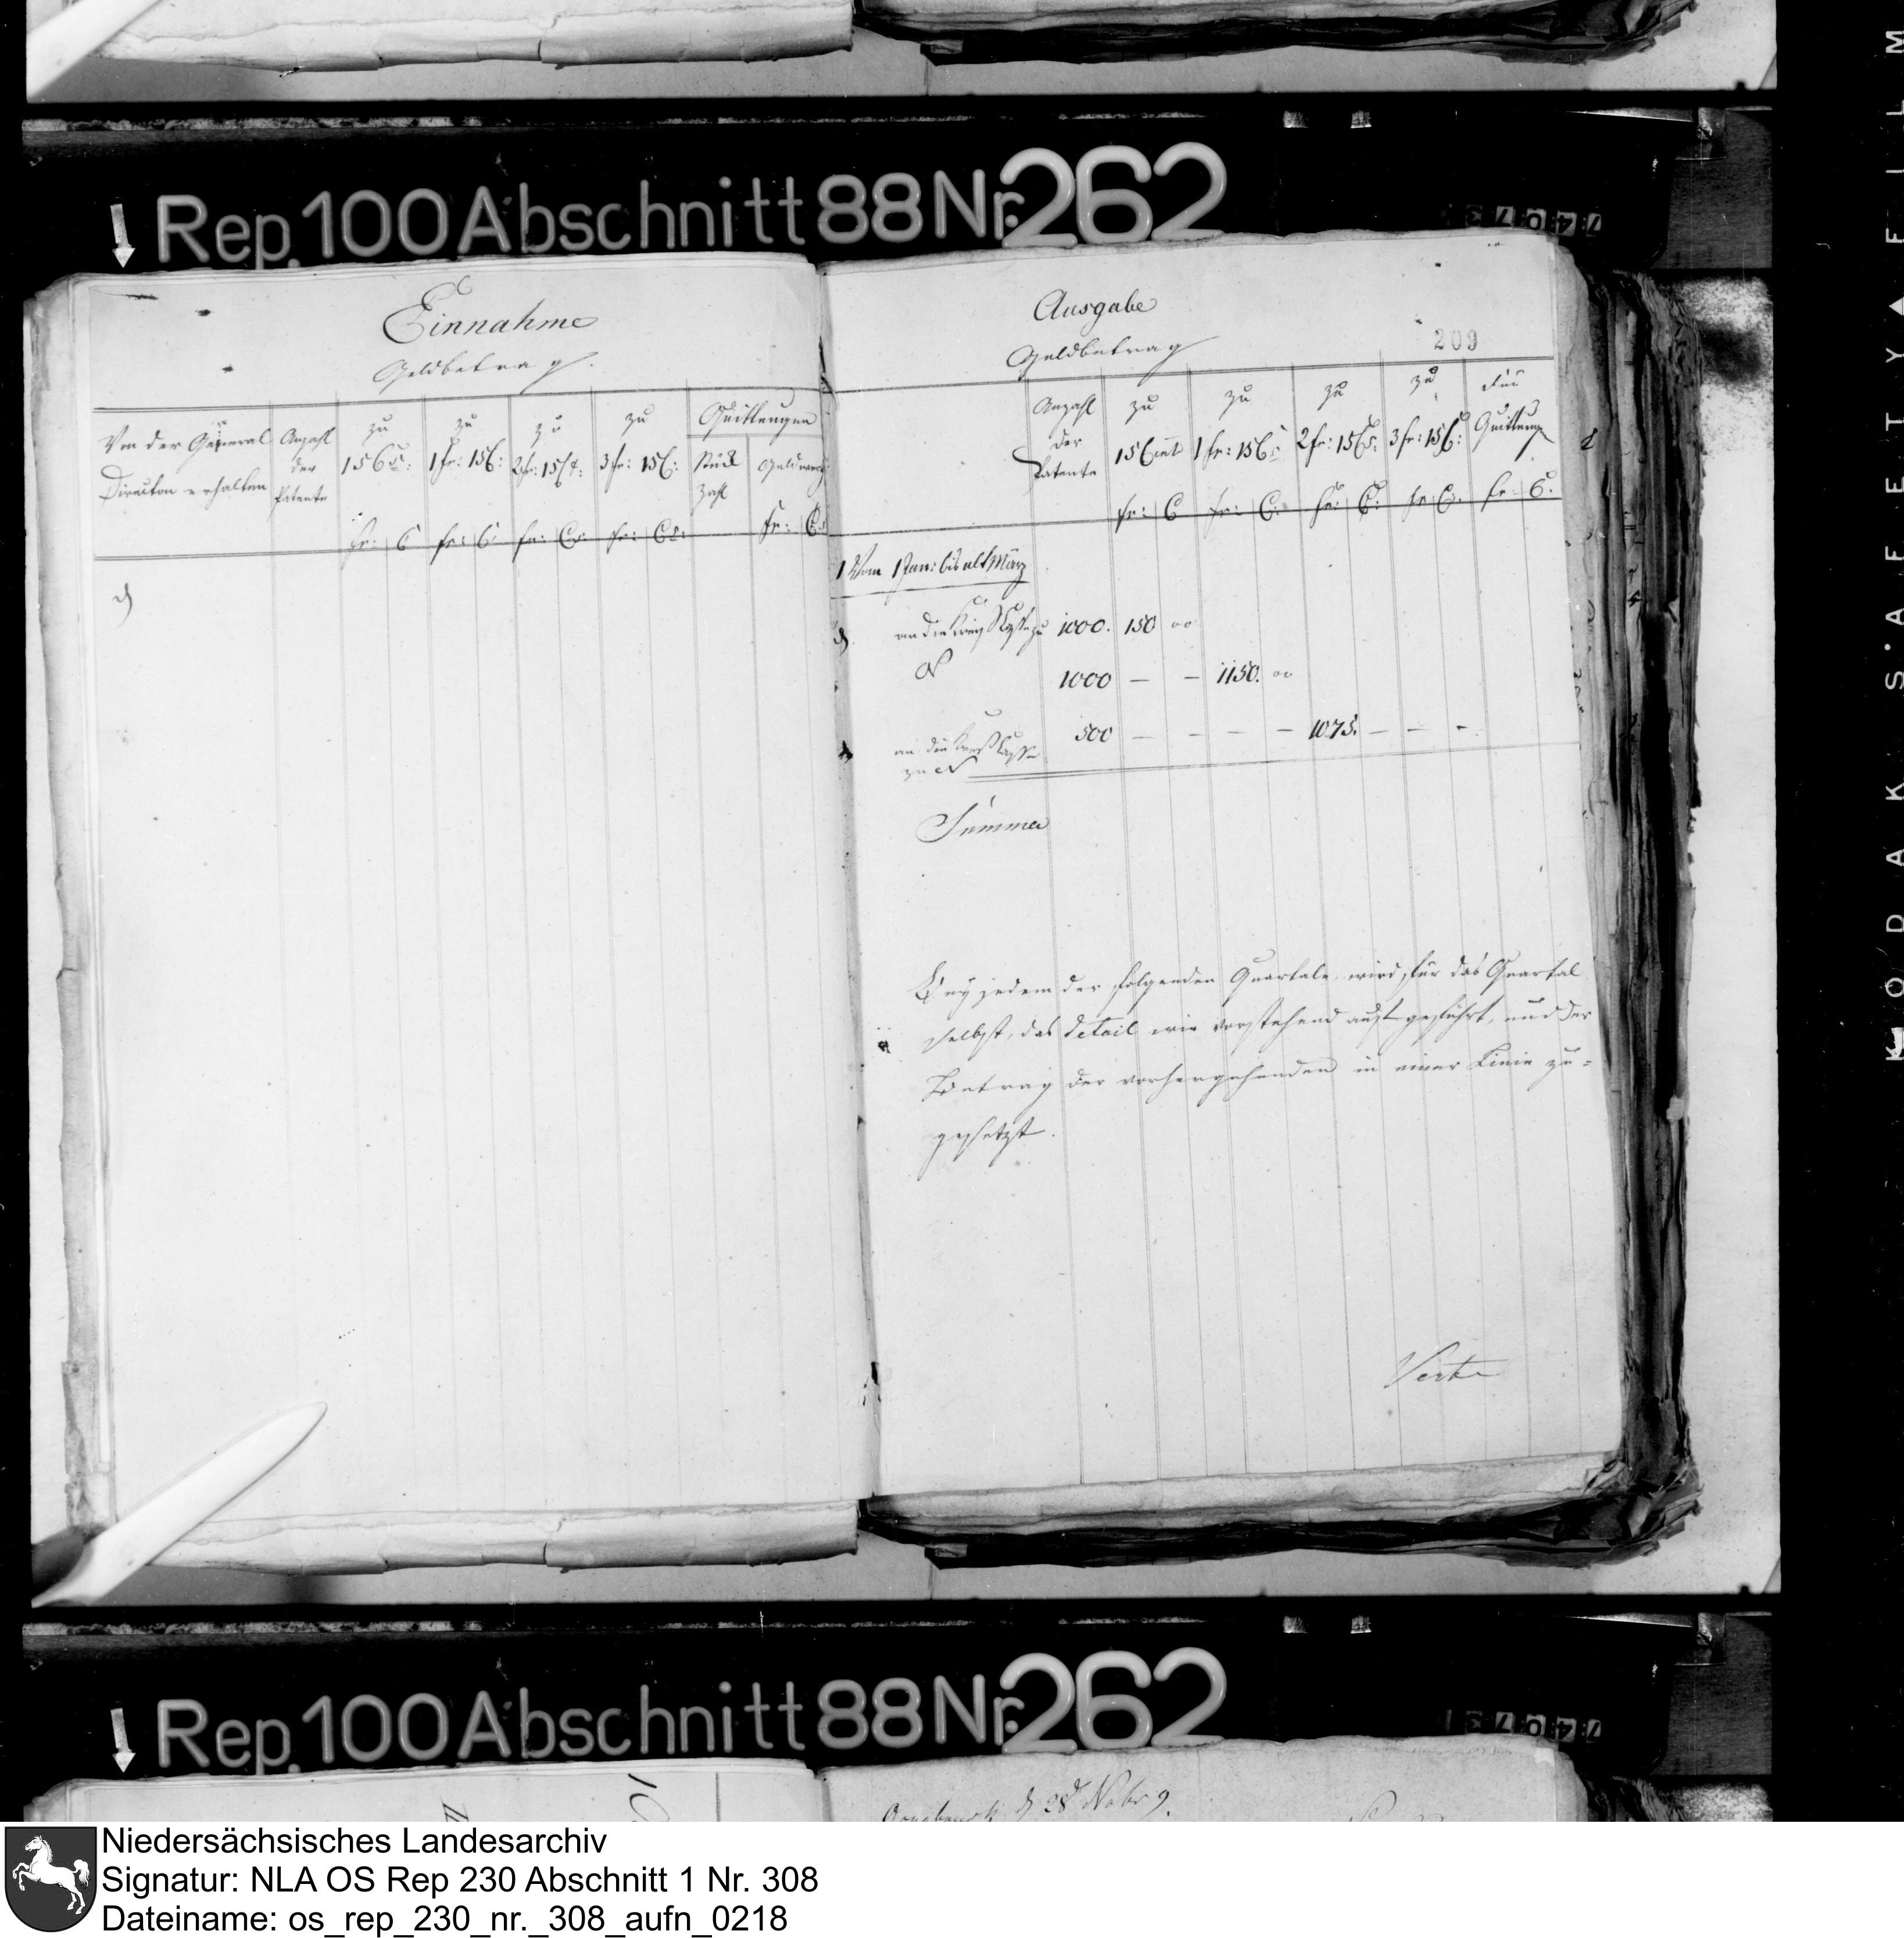 Rep. 100 Abschnitt 88 Nr. 262
Einnahme
Geldbetrag.
Von der General
Direction erhalten
Anzahl
der
Patente
zu
15 Cs:
zu
1 fr: 15 C:
zu
2 fr: 15 Ct:
zu
3 fr: 15 C:
Quittungen
Stück
Zahl
Geldwerth
fr: C fr: C fr: Cs: fr: Cs: fr: Cs
Ausgabe
Geldbetrag
209
Anzahl
der
Patente
zu
15 Cent
zu
1 fr: 15 Cs
zu
2 fr: 15 Cs:
zu
3 fr: 15 C:
für
Quittung
fr: C fr: C: fr: C: fr C. fr: C.
1 Vom 1 Jan: bis ult März
an die Kreis Casse zu 1000. 150 00
1000 — — 1150. 00
an die Kreis Casse 500 — — — — 1075. — — —
zu
Summa
Bey jedem der folgenden Quartale wird, für das Quartal
selbst, das Detail wie vorstehend aufgeführt, und der
Betrag der vorhergehenden in einer Linie zu=
gesetzt.
Verte
Rep. 100 Abschnitt 88 Nr. 262
28 Nobr 9.
KODAK SAFETY FILM
Niedersächsisches Landesarchiv
Signatur: NLA OS Rep 230 Abschnitt 1 Nr. 308
Dateiname: os_rep_230_nr._308_aufn_0218